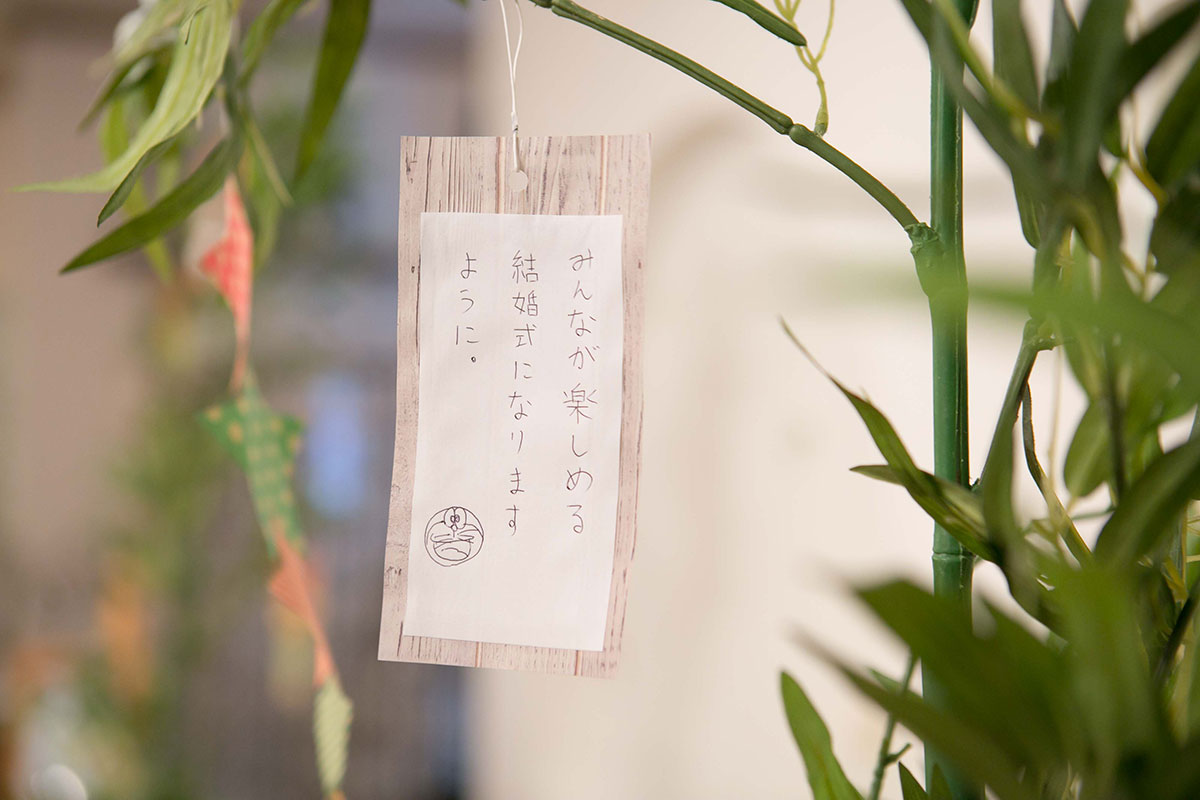 みんなが楽しめる
結婚式になります
ように。